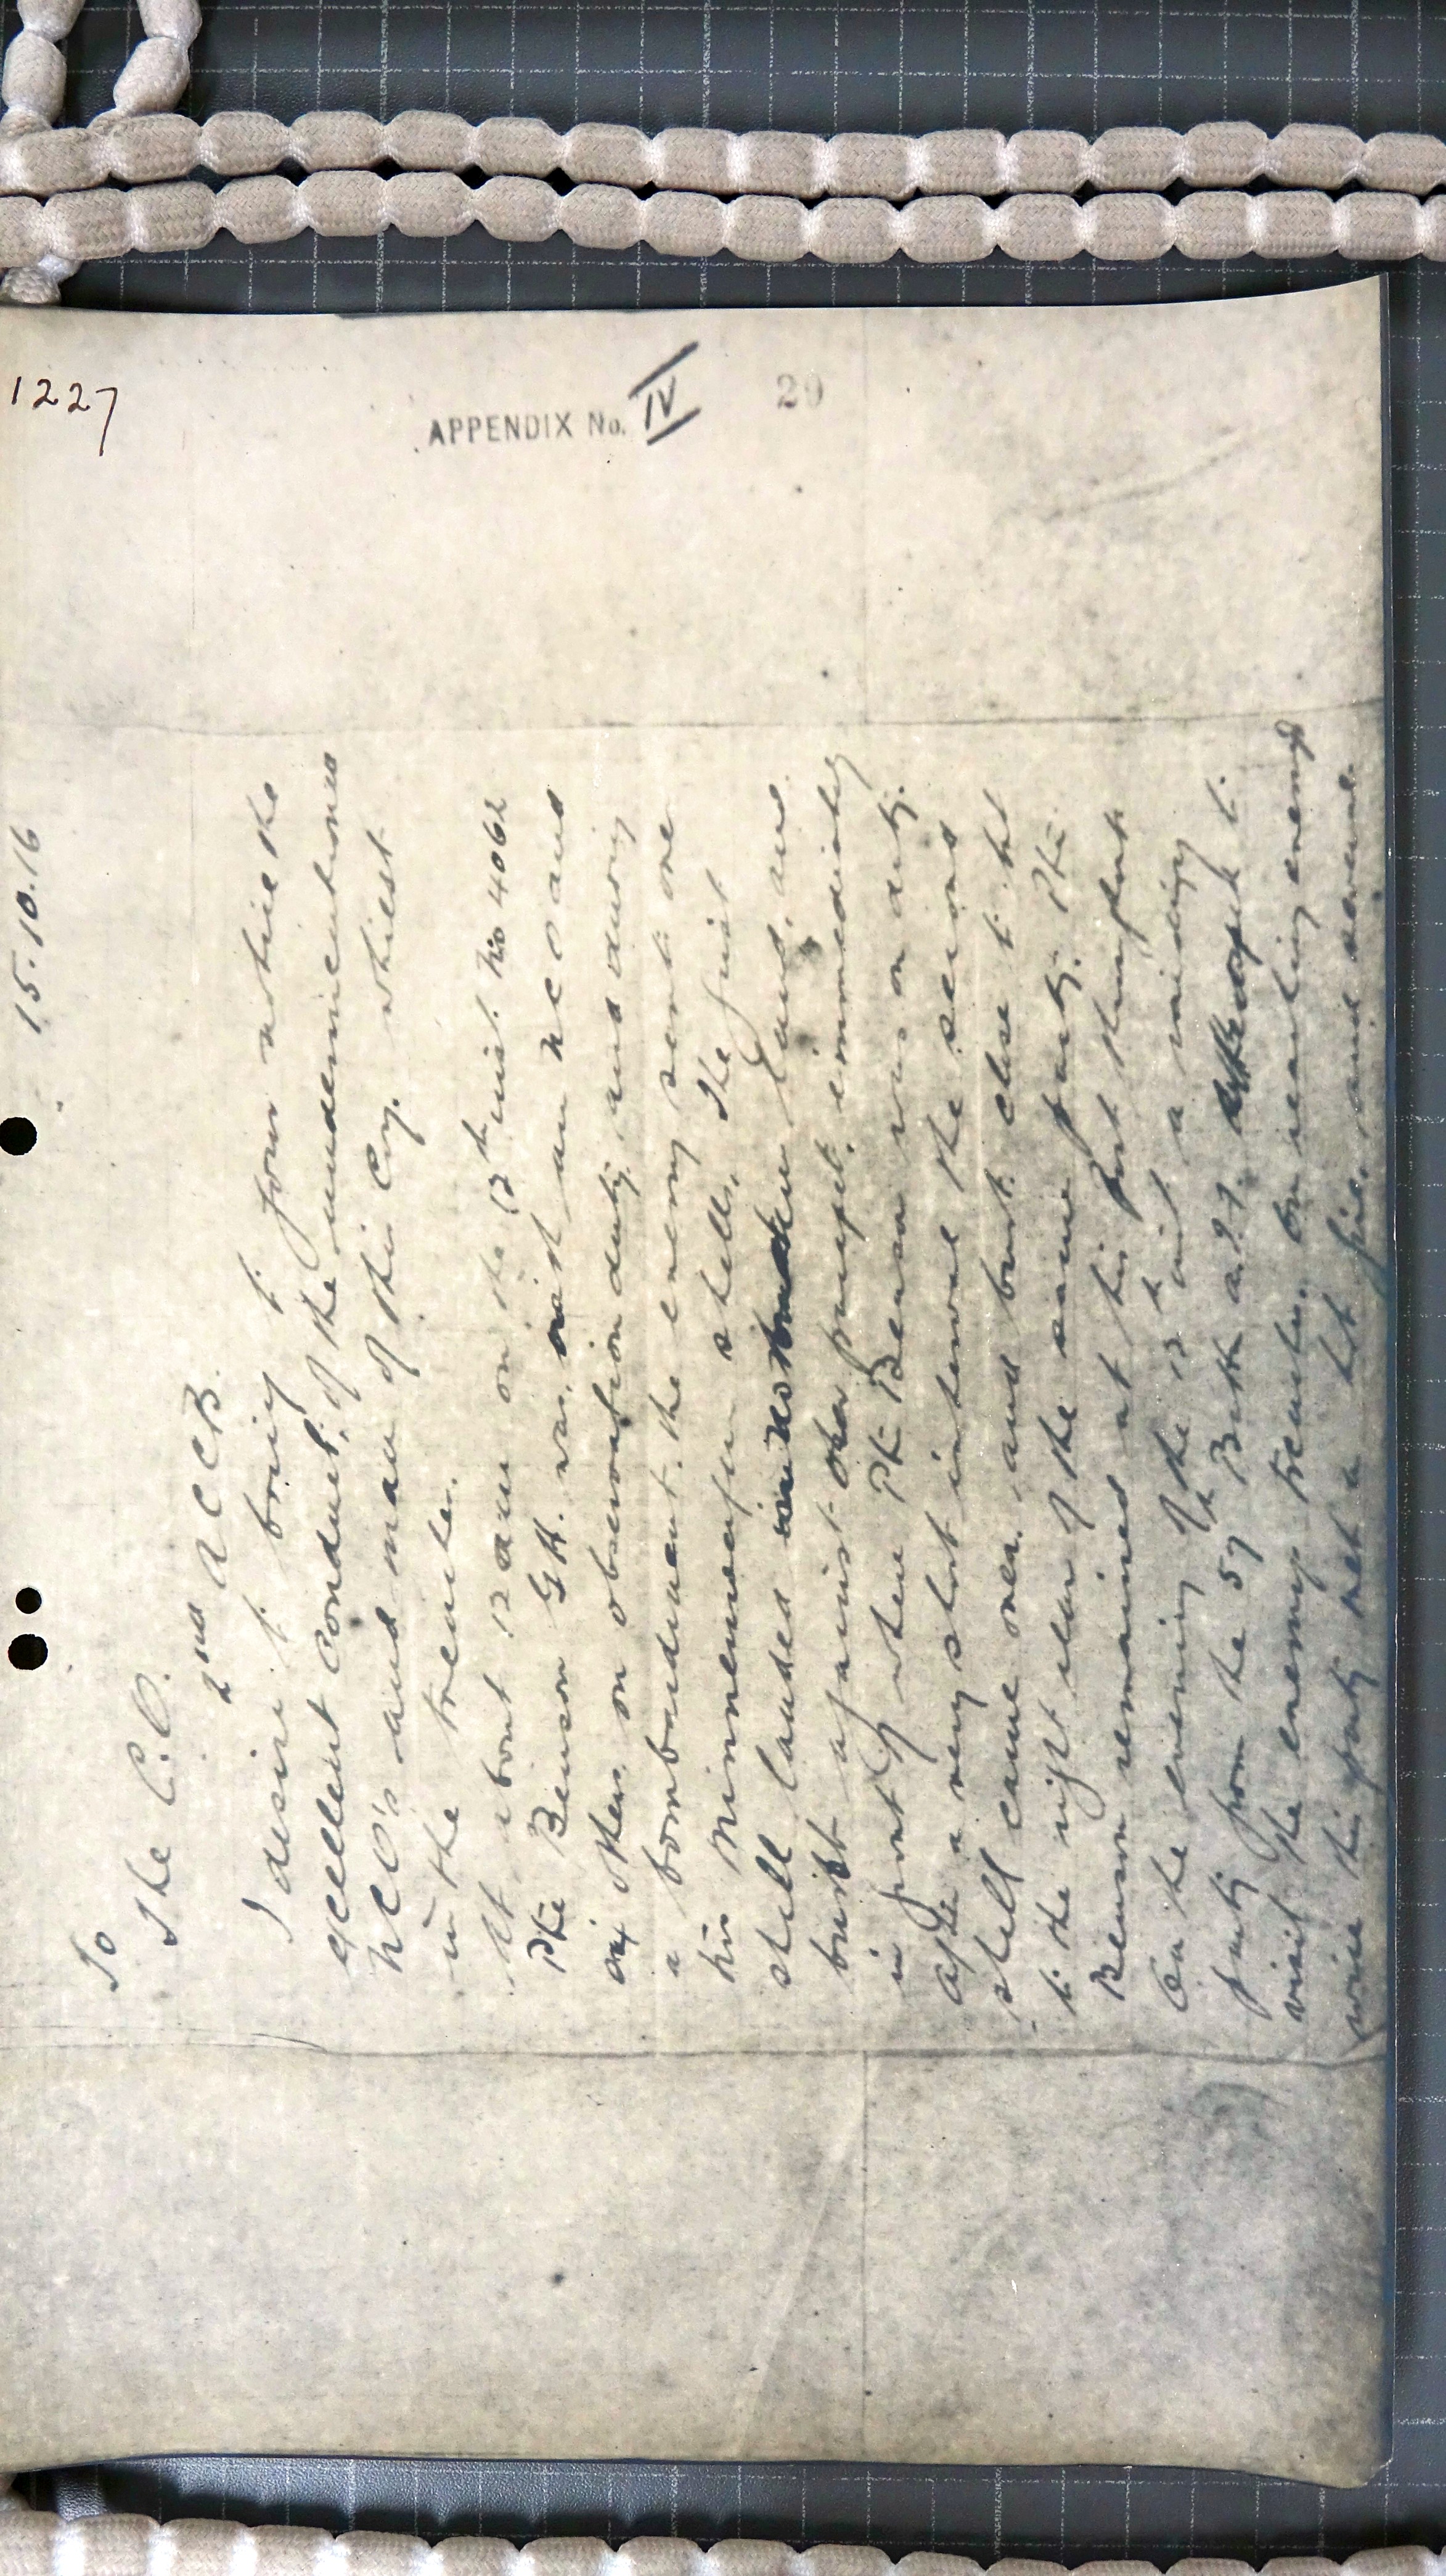 1227
APPENDIX No. IV
20
15.10.16
To
The C.O.
2nd A C C B.
I desire to bring to your notice the
excellent conduct of the undermentioned
NCO's and man of this Coy. whilst
in the trenches.
At about 12 am on the 12th inst. No 4062
Pte Benson G.H. was, with an NCO and
six others, on observation duty, and during
a bombardment, the enemy sent over
his Minnenwerfer shells. The first
shell landed in No mans land, and
burst against our parapet, immediately
in front of where Pte Benson was on duty.
After a very short interval the second
shell came over, and burst close to but
to the right rear of the same party. Pte
Benson remained at his post throughout.
On the evening of the 12th inst a raiding
party from the 57th Battn A.I.F. attempted to
visit the enemy trenches. On reaching enemy
wire this party met a hot fire, and several